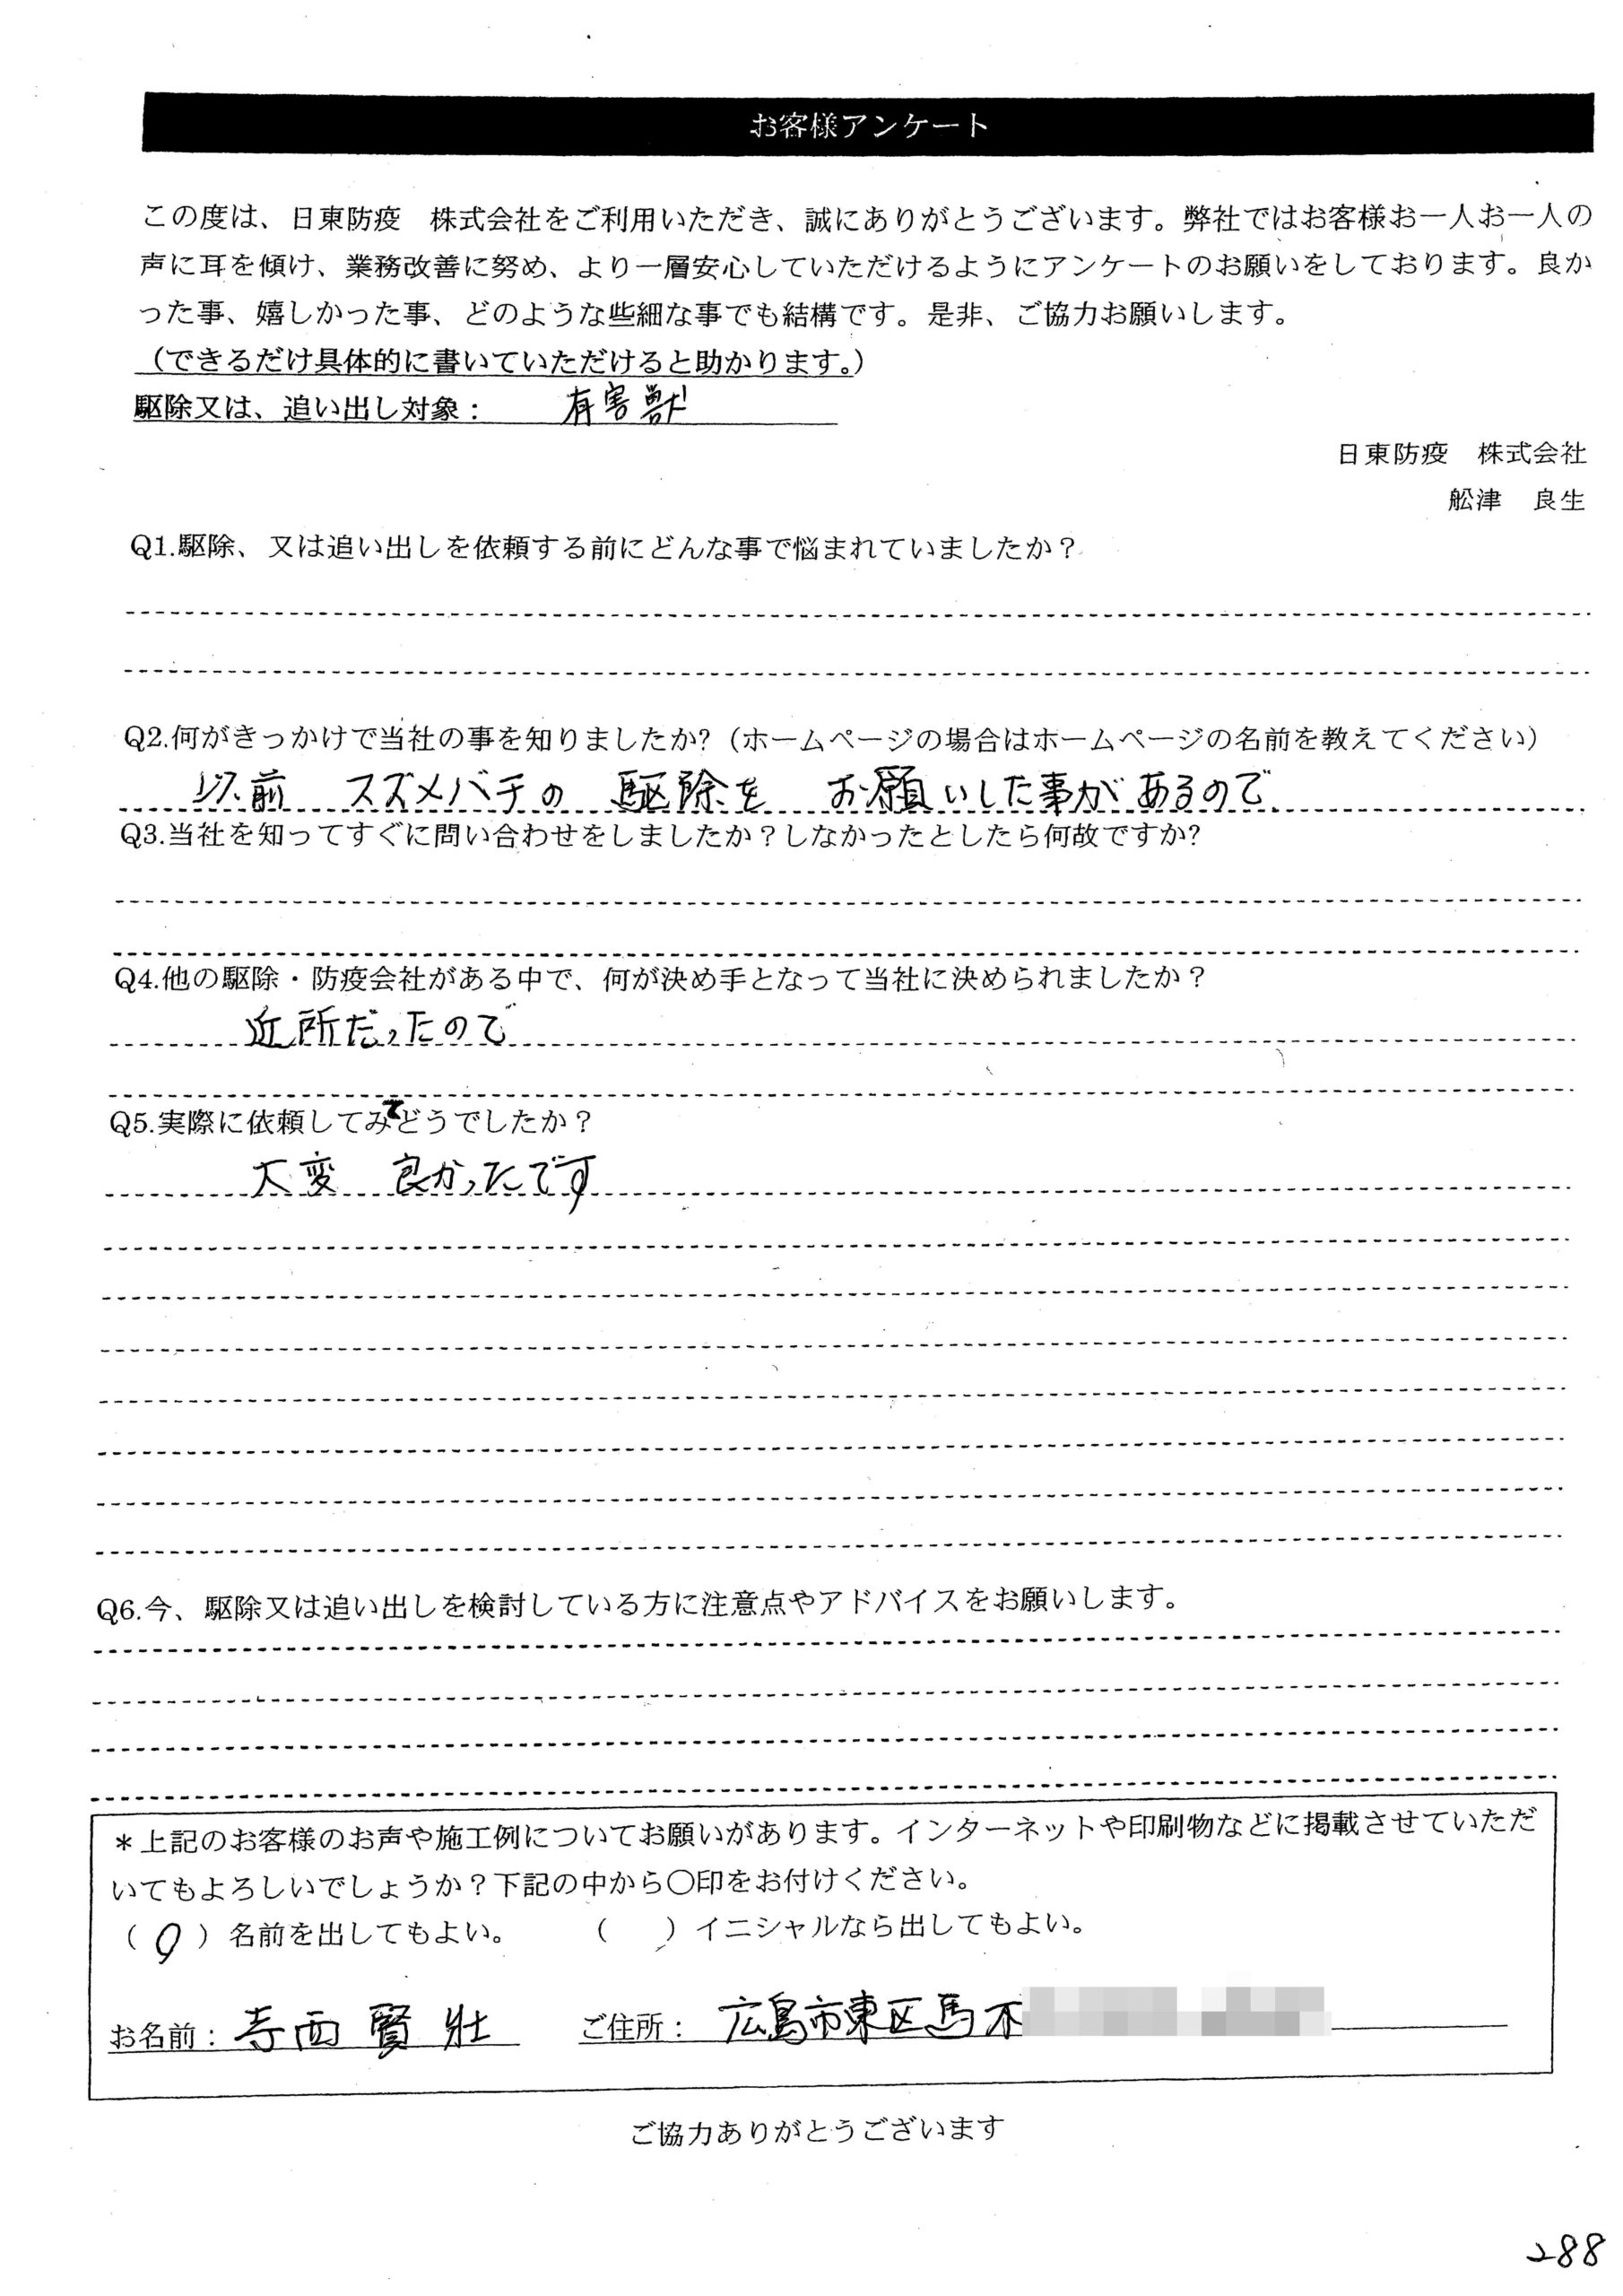 お客様アンケート
この度は、日東防疫　株式会社をご利用いただき、誠にありがとうございます。弊社ではお客様お一人お一人の
声に耳を傾け、業務改善に努め、より一層安心していただけるようにアンケートのお願いをしております。良か
った事、嬉しかった事、どのような些細な事でも結構です。是非、ご協力お願いします。
（できるだけ具体的に書いていただけると助かります。）
駆除又は、追い出し対象：　有害獣
日東防疫　株式会社
舩津　良生
Q1.駆除、又は追い出しを依頼する前にどんな事で悩まれていましたか？
Q2.何がきっかけで当社の事を知りましたか?（ホームページの場合はホームページの名前を教えてください）
以前　スズメバチの　駆除を　お願いした事があるので
Q3.当社を知ってすぐに問い合わせをしましたか？しなかったとしたら何故ですか?
Q4.他の駆除・防疫会社がある中で、何が決め手となって当社に決められましたか？
近所だったので
Q5.実際に依頼してみてどうでしたか？
大変　良かったです
Q6.今、駆除又は追い出しを検討している方に注意点やアドバイスをお願いします。
＊上記のお客様のお声や施工例についてお願いがあります。インターネットや印刷物などに掲載させていただ
いてもよろしいでしょうか？下記の中から〇印をお付けください。
（〇）名前を出してもよい。　（　）イニシャルなら出してもよい。
お名前：寺西　賢　壮　ご住所：広島市東区馬木
ご協力ありがとうございます
288